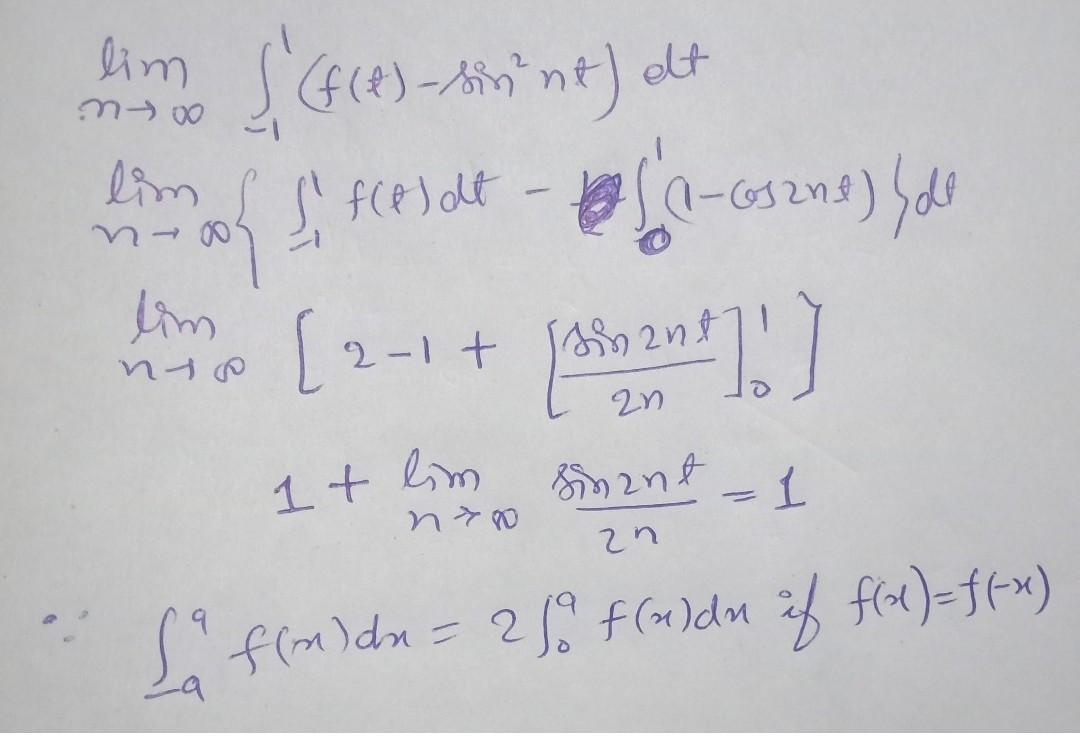 lim n→∞ ∫₋₁¹ (f(t) - sin² nt) dt
lim n→∞ { ∫₋₁¹ f(t) dt - ∫₀¹ (1 - cos 2nt) } dt
lim n→∞ [ 2 - 1 + [ sin 2nt / 2n ]₀¹ ]
1 + lim n→∞ sin 2nt / 2n = 1
∵ ∫₋ₐᵃ f(x) dx = 2 ∫₀ᵃ f(x) dx if f(x) = f(-x)